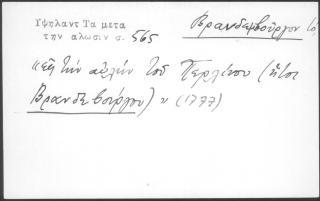 Υψηλαντ Τα μετα
την αλωσιν σ. 565
Βρανδεμβοῦργον
"εἰς τὴν αὐλὴν τοῦ Περλίνου (ἤτοι
Βρανδεβούργου)" (1777)